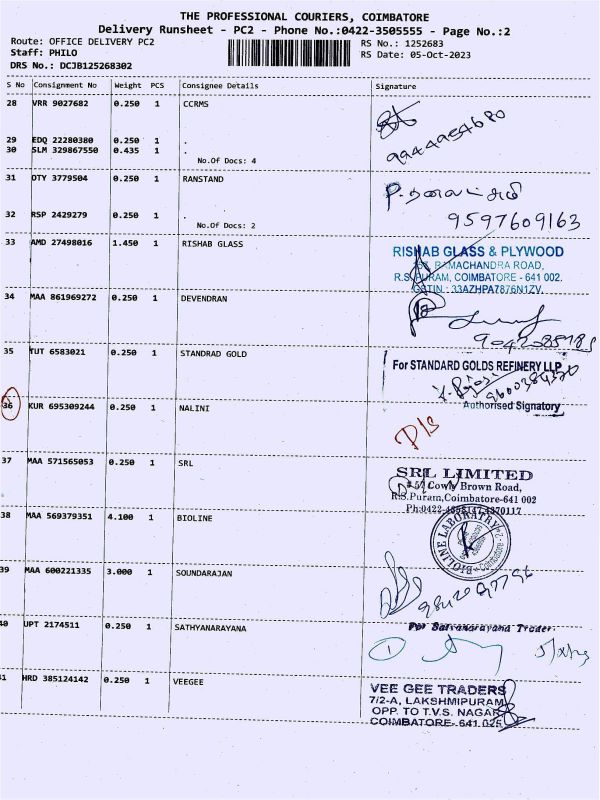 THE PROFESSIONAL COURIERS, COIMBATORE
Delivery Runsheet - PC2 - Phone No.:0422-3505555 - Page No.:2
Route: OFFICE DELIVERY PC2
RS No.: 1252683
Staff: PHILO
RS Date: 05-Oct-2023
DRS No.: DCJB125268302
S No Consignment No Weight PCS Consignee Details Signature
28 VRR 9027682 0.250 1 CCRMS
29 EDQ 22280380 0.250 1 .
30 SLM 329867550 0.435 1 .
No.Of Docs: 4
31 OTY 3779504 0.250 1 RANSTAND
32 RSP 2429279 0.250 1 .
9597609163
No.Of Docs: 2
33 AMD 27498016 1.450 1 RISHAB GLASS
RISHAB GLASS & PLYWOOD
RAMACHANDRA ROAD,
R.S. PURAM, COIMBATORE - 641 002.
GSTIN : 33AZHPA7876N1ZV.
34 MAA 861969272 0.250 1 DEVENDRAN
35 TUT 6583021 0.250 1 STANDRAD GOLD
For STANDARD GOLDS REFINERY LLP
Authorised Signatory
36 KUR 695309244 0.250 1 NALINI
P/S
37 MAA 571565053 0.250 1 SRL
SRL LIMITED
Cowly Brown Road,
R.S.Puram, Coimbatore-641 002
38 MAA 569379351 4.100 1 BIOLINE
BIOLINE LABORATRY
39 MAA 600221335 3.000 1 SOUNDARAJAN
40 UPT 2174511 0.250 1 SATHYANARAYANA
For Satyanarayana Trader.
41 HRD 385124142 0.250 1 VEEGEE
VEE GEE TRADERS
7/2-A, LAKSHMIPURAM
OPP. TO T.V.S. NAGAR
COIMBATORE- 641 025